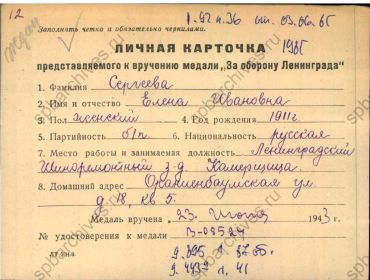 12
Заполнять четко и обязательно чернилами.
ЛИЧНАЯ КАРТОЧКА
представляемого к вручению медали „За оборону Ленинграда"
1. Фамилия Сергеева
2. Имя и отчество Елена Ивановна
3. Пол женский 4. Год рождения 1911г.
5. Партийность б/п. 6. Национальность русская
7. Место работы и занимаемая должность Ленинградский
Шиноремонтный з-д. Камерщица
8. Домашний адрес Ораниенбаумская ул.
д. 18, кв 5.
Медаль вручена 23. 1943 г.
№ удостоверения к медали
spbarchives.ru